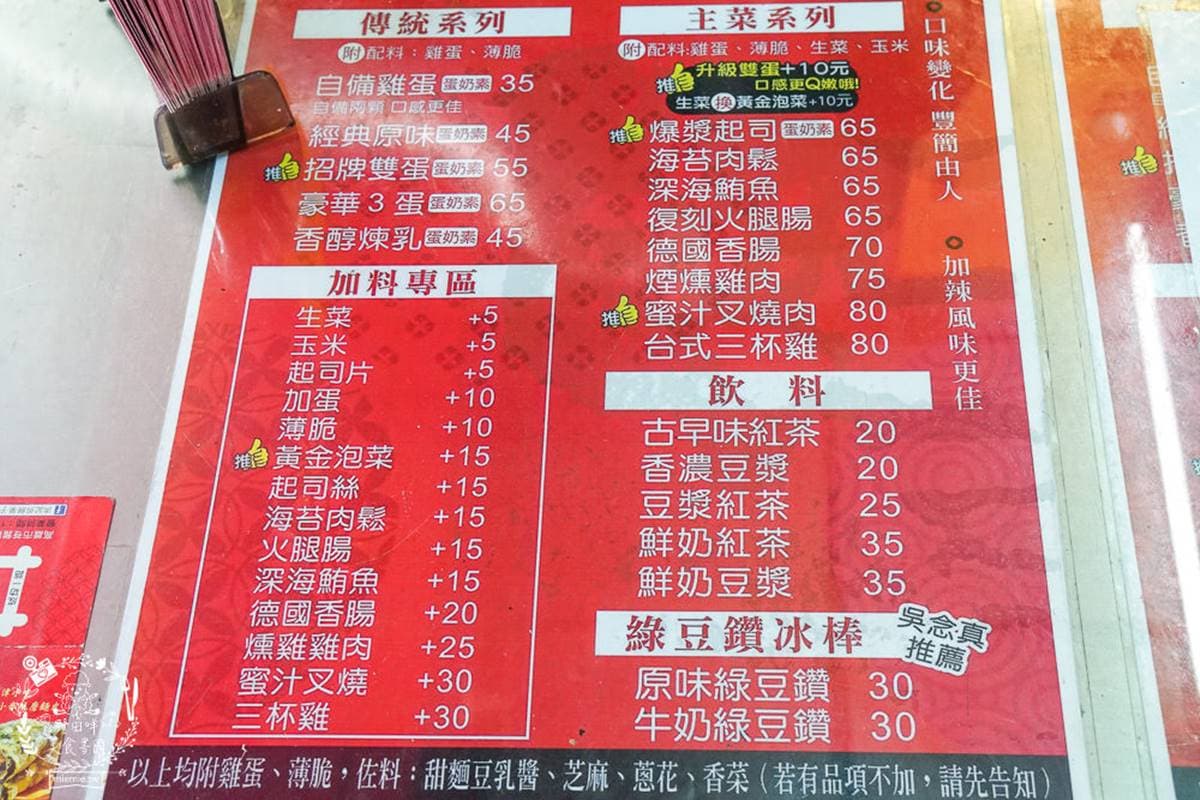 傳統系列
附 配料：雞蛋、薄脆
自備雞蛋 蛋奶素 35
自備兩顆 口感更佳
經典原味 蛋奶素 45
推 招牌雙蛋 蛋奶素 55
豪華3蛋 蛋奶素 65
香醇煉乳 蛋奶素 45
加料專區
生菜 +5
玉米 +5
起司片 +5
加蛋 +10
薄脆 +10
推 黃金泡菜 +15
起司絲 +15
海苔肉鬆 +15
火腿腸 +15
深海鮪魚 +15
德國香腸 +20
燻雞雞肉 +25
蜜汁叉燒 +30
三杯雞 +30
主菜系列
附 配料:雞蛋、薄脆、生菜、玉米
推 升級雙蛋+10元
口感更Q嫩哦!
生菜換黃金泡菜+10元
推 爆漿起司 蛋奶素 65
海苔肉鬆 65
深海鮪魚 65
復刻火腿腸 65
德國香腸 70
煙燻雞肉 75
推 蜜汁叉燒肉 80
台式三杯雞 80
飲料
古早味紅茶 20
香濃豆漿 20
豆漿紅茶 25
鮮奶紅茶 35
鮮奶豆漿 35
綠豆鑽冰棒
吳念真
推薦
原味綠豆鑽 30
牛奶綠豆鑽 30
口味變化 豐簡由人
加辣風味更佳
以上均附雞蛋、薄脆，佐料：甜麵豆乳醬、芝麻、蔥花、香菜（若有品項不加，請先告知）
推